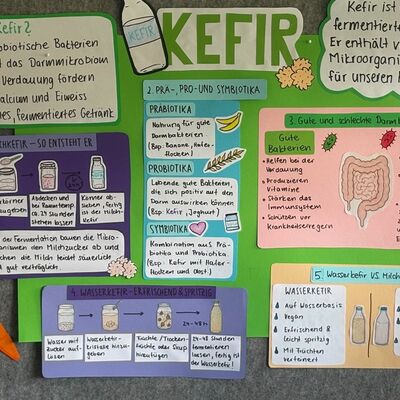 Kefir?
KEFIR
KEFIR
Kefir ist
fermentierte
Er enthält v
Mikroorganis
für unseren
probiotische Bakterien
das Darmmikrobiom
Verdauung fördern
Calcium und Eiweiss
fermentiertes Getränk
2. PRÄ-, PRO- UND SYMBIOTIKA
PRÄBIOTIKA
Nahrung für gute
Darmbakterien
(Bsp: Banane, Hafer-
flocken)
PROBIOTIKA
Lebende gute Bakterien,
die sich positiv auf den
Darm auswirken können
(Bsp: Kefir, Joghurt)
SYMBIOTIKA
Kombination aus Prä-
biotika und Probiotika.
(Bsp: Kefir mit Hafer-
flocken und Obst.)
3. Gute und schlechte Darmb
Gute
Bakterien
Helfen bei der
Verdauung
Produzieren
Vitamine
Stärken das
Immunsystem
Schützen vor
Krankheitserregern
SO ENTSTEHT ER
Abdecken und
bei Raumtemp.
ca. 24 Stunden
stehen lassen
Körner
ab, fertig
ist der
Milch-
kefir
der Fermentation bauen die Mikro-
den Milchzucker ab und
die Milch leicht säuerlich
gut verträglich.
4. WASSERKEFIR - ERFRISCHEND & SPRITZIG
24-48 H
Wasser mit
Zucker auf-
lösen
Wasserkefir-
kristalle hinzu-
geben
Früchte / Trocken-
früchte oder Sirup
hinzufügen
24-48 Stunden
fermentieren
lassen, fertig ist
der Wasserkefir!
5. Wasserkefir VS. Milch
WASSERKEFIR
Auf Wasserbasis
Vegan
Erfrischend &
leicht spritzig
Mit Früchten
verfeinert